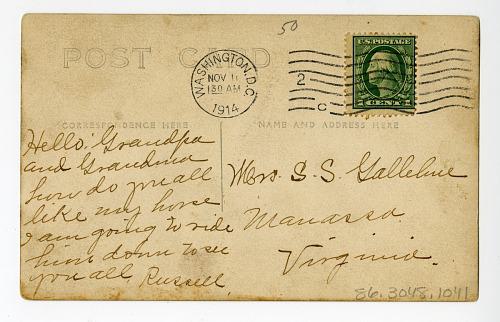 50
POST CARD
U.S. POSTAGE
WASHINGTON, D.C.
NOV 11
130 AM
1914
2
C
CORRESPONDENCE HERE
NAME AND ADDRESS HERE
Hello Grandpa
and Grandma
how do you all
like my horse
I am going to ride
him down to see
you all. Russell.
Mrs. S. S. Gallehue
Manassa
Virginia.
86.3048.1041